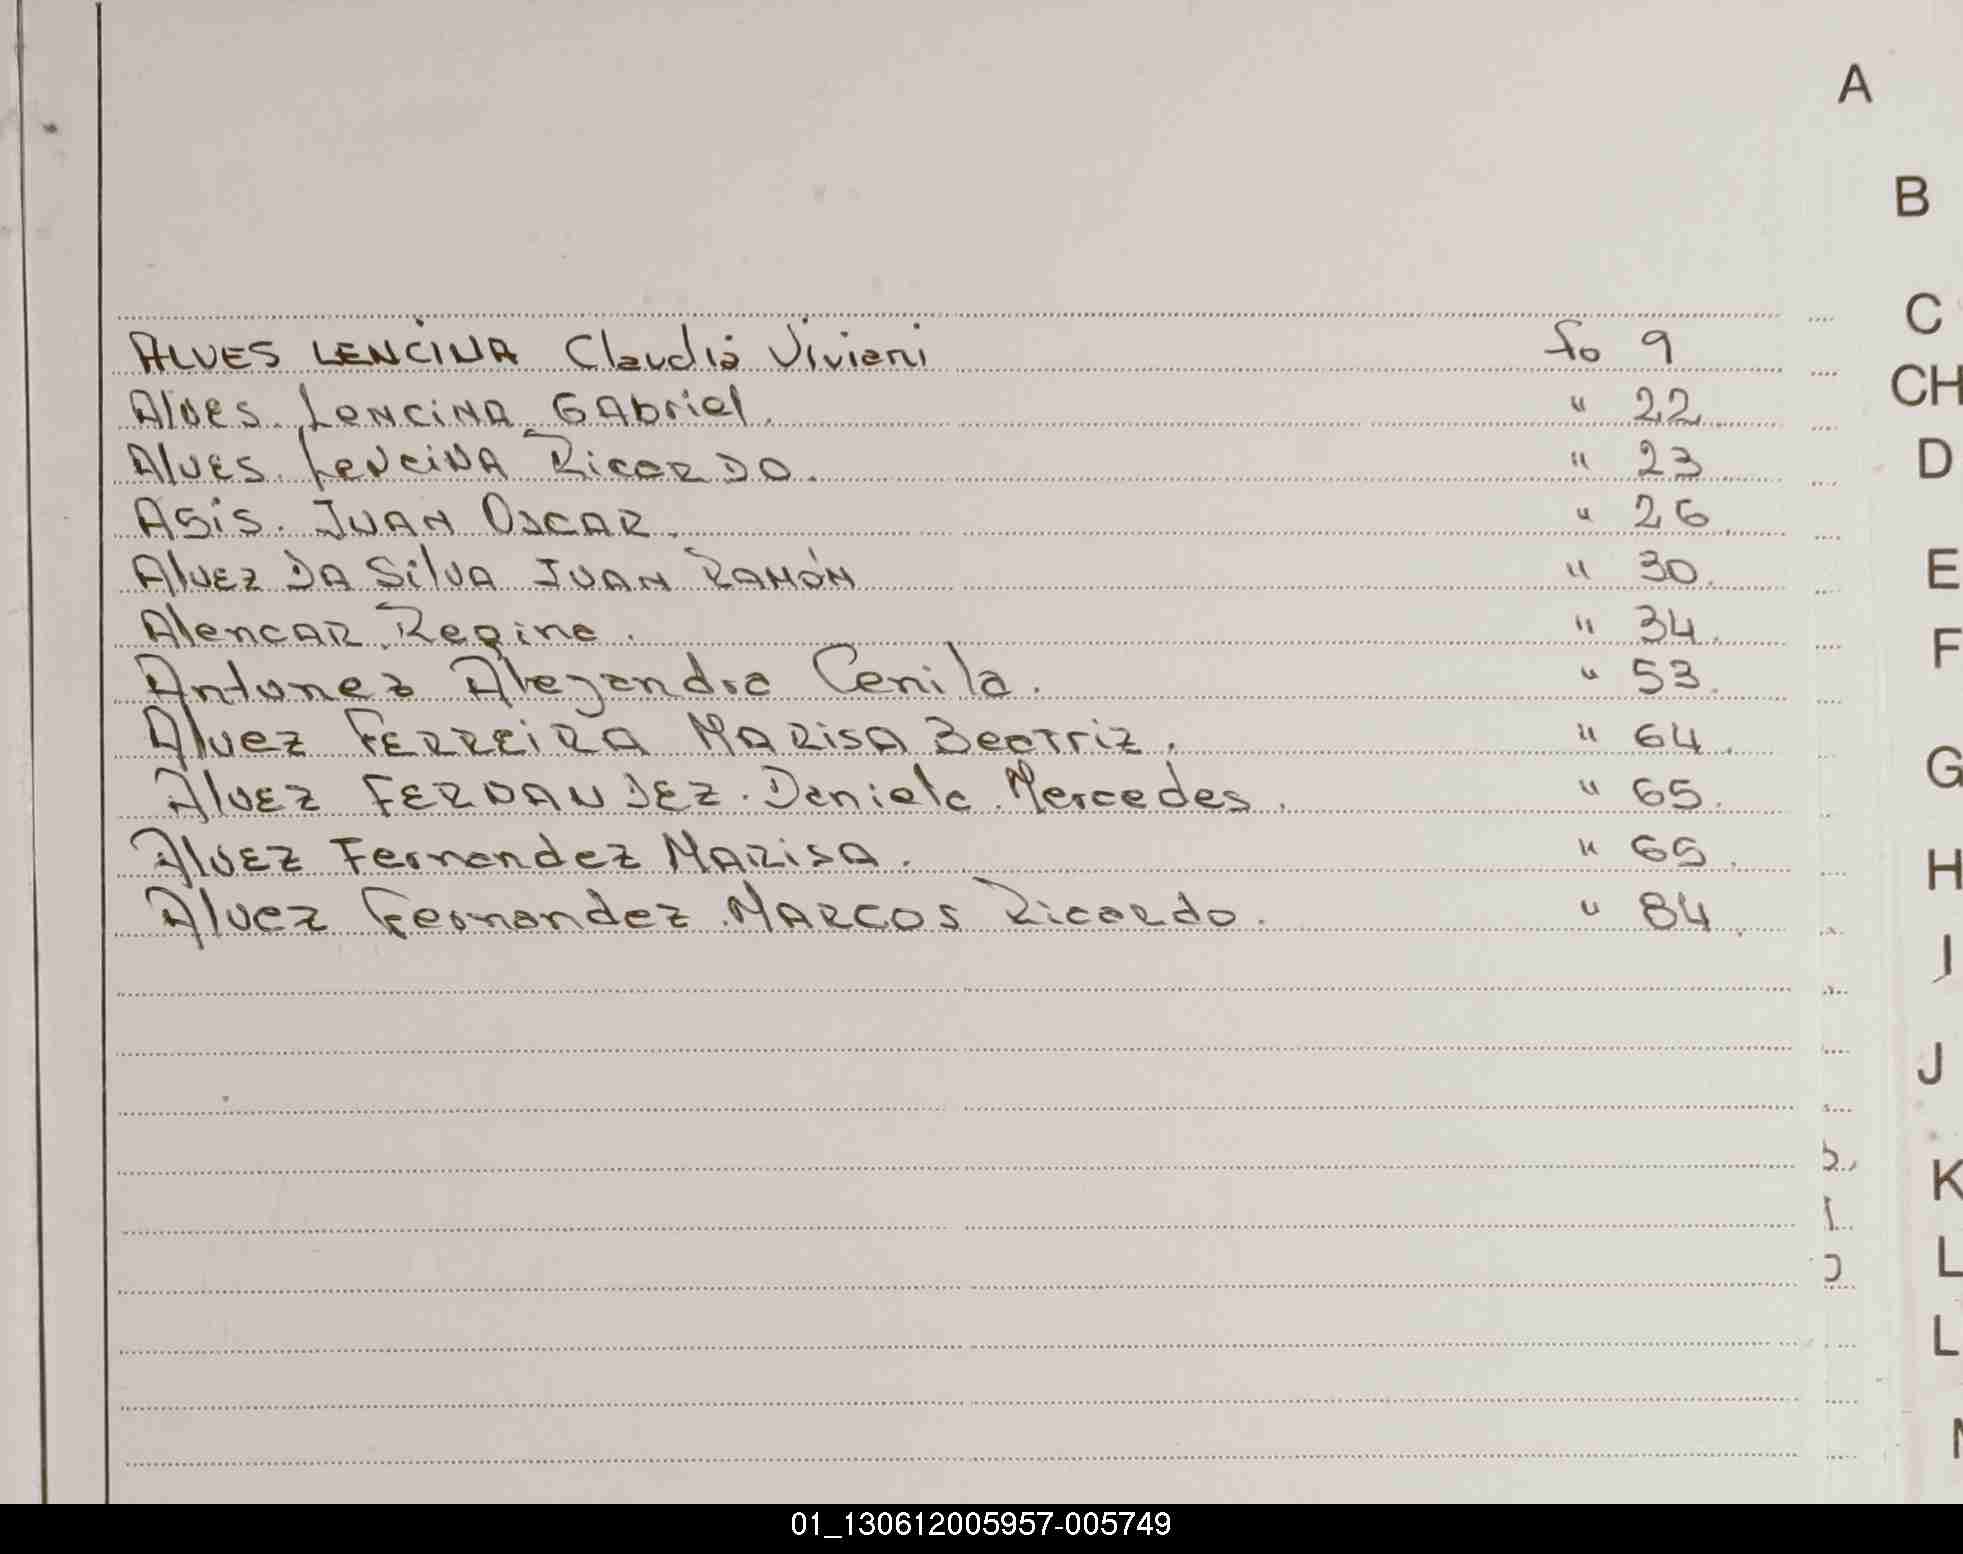 A
B
C
ALVES LENCINA Claudia Viviani fo 9
CH
Alves. Lencina Gabriel. " 22
D
Alves. Lencina Ricardo. " 23
Asis. Juan Oscar. " 26
E
Alvez Da Silva Juan Ramón " 30
F
Alencar Regina. " 34
Antunez Alejandra Cenila. " 53
Alvez Ferreira Marisa Beatriz. " 64
G
Alvez Fernandez. Daniela Mercedes. " 65
H
Alvez Fernandez Marisa. " 65
Alvez Fernandez Marcos Ricardo. " 84
I
J
K
L
L
01_130612005957-005749